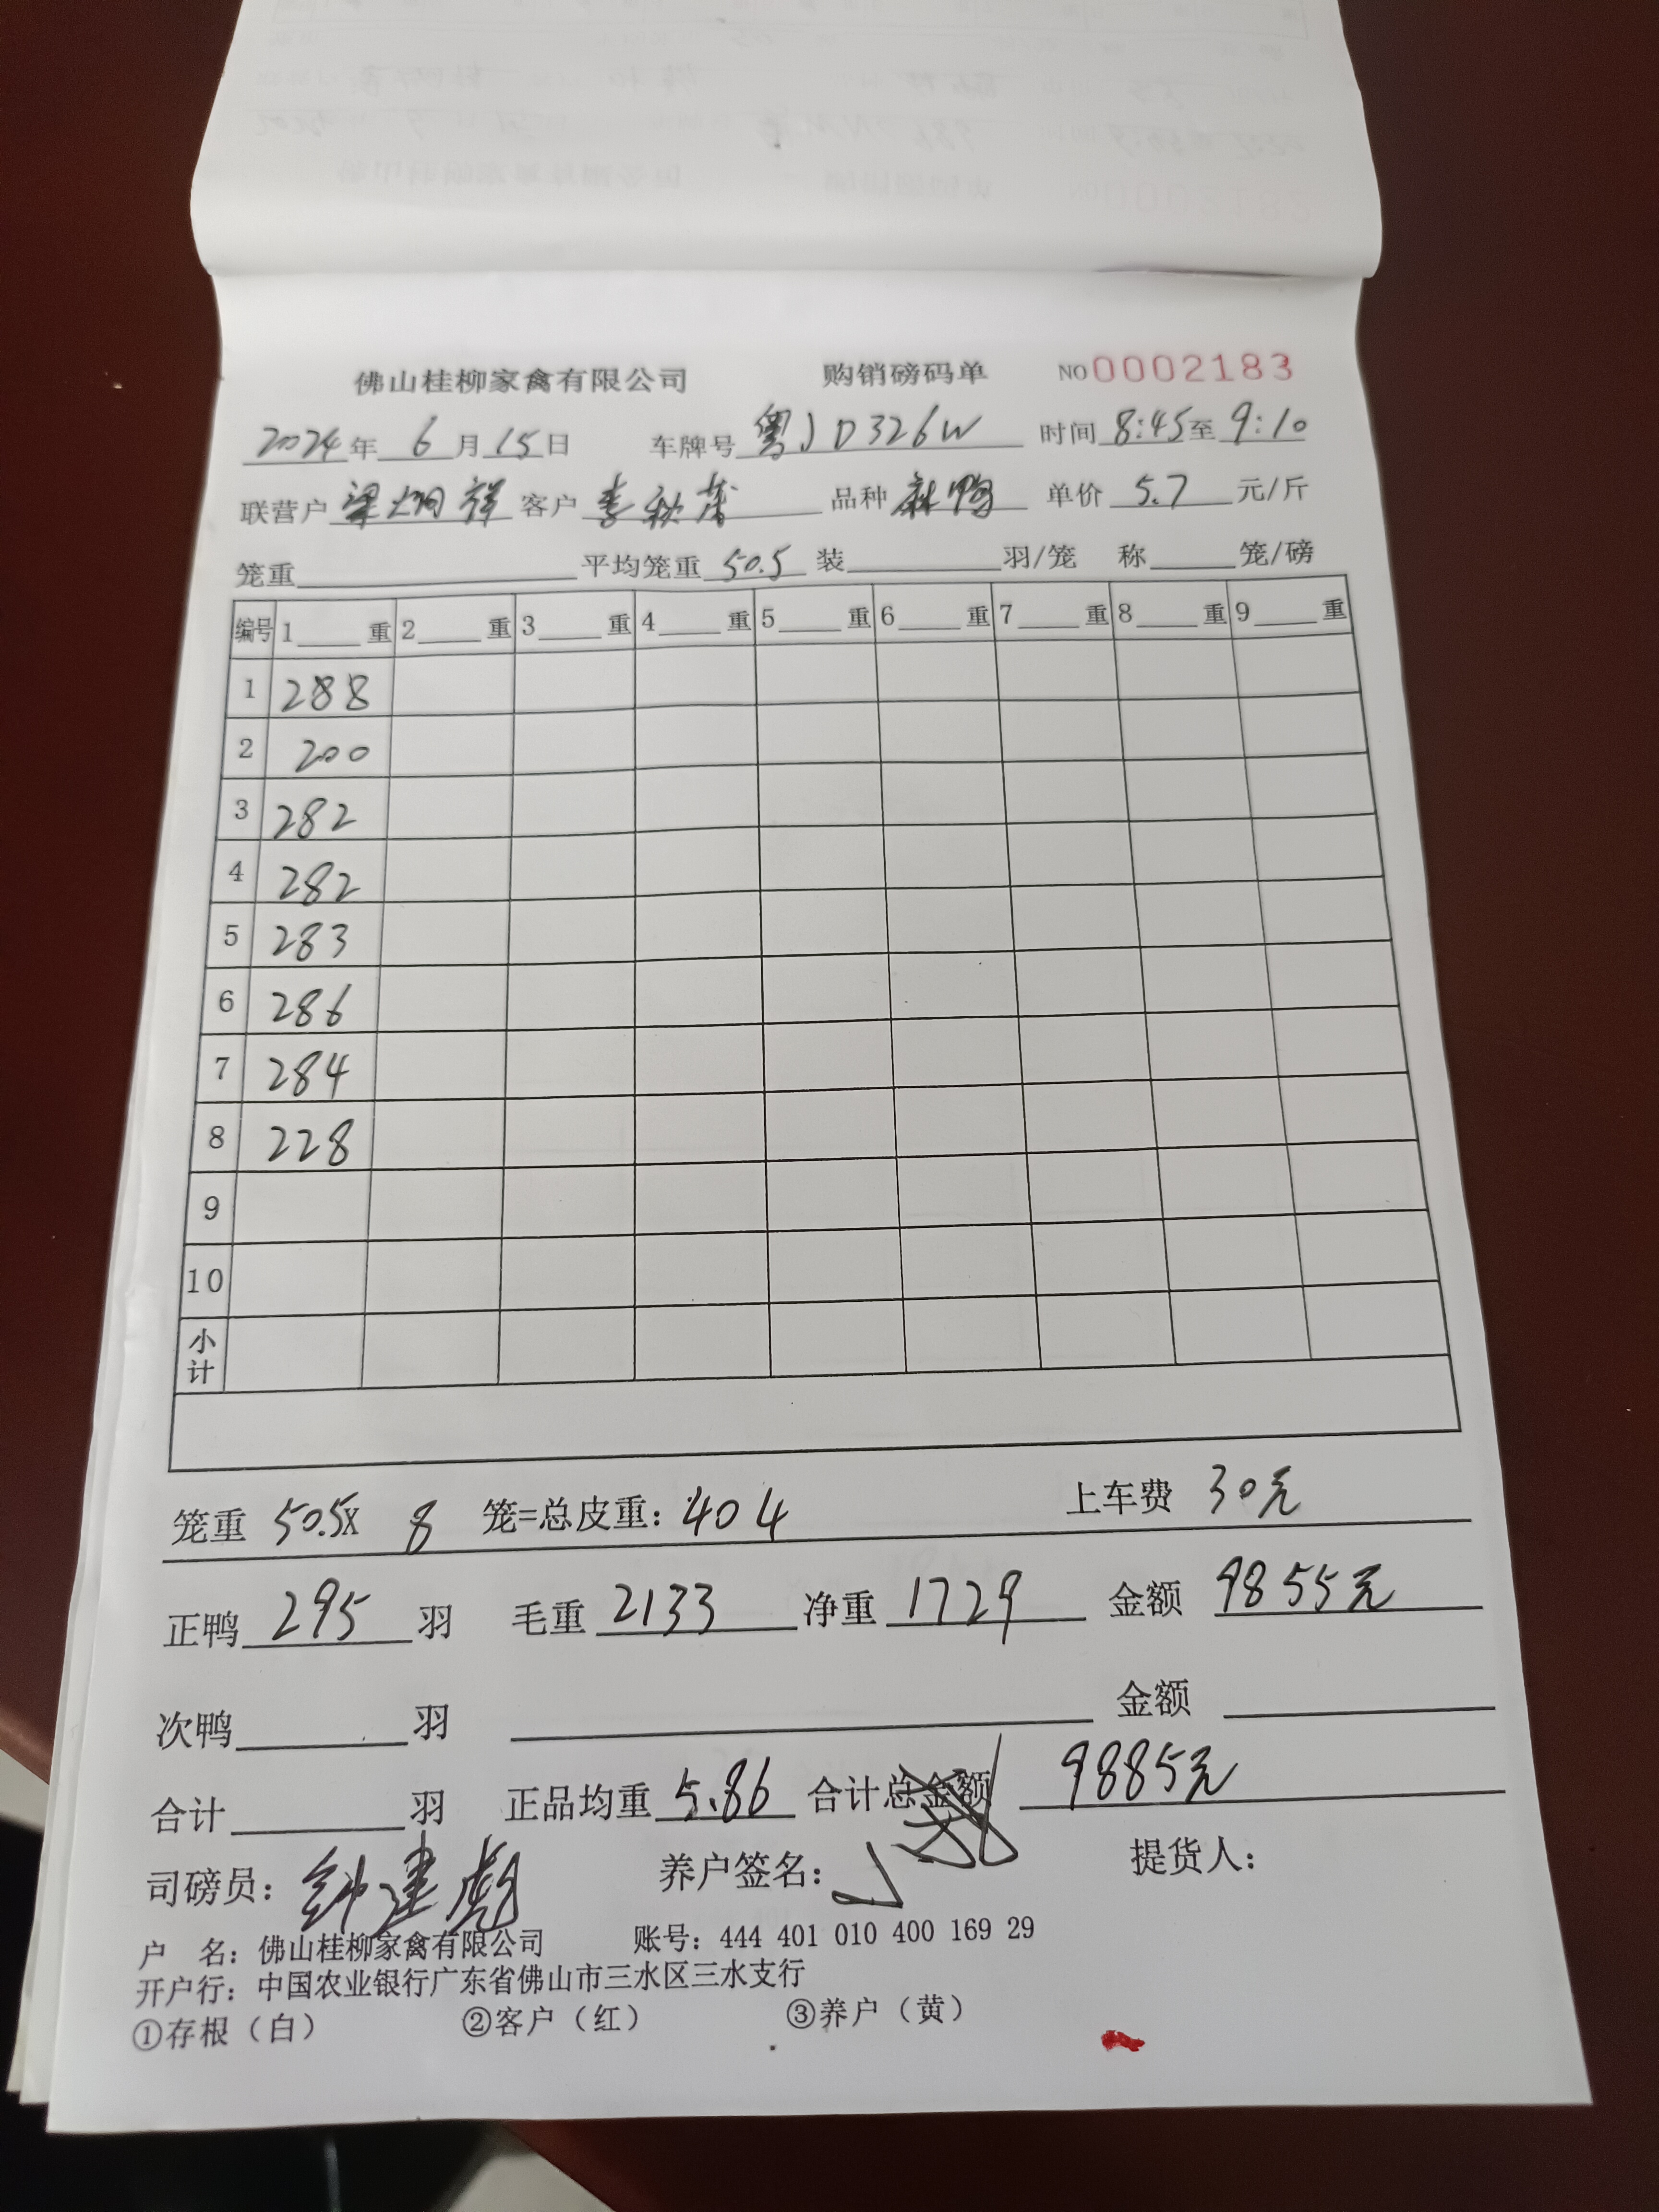 佛山桂柳家禽有限公司 购销磅码单 NO 0002183
2024年 6月15日 车牌号 粤JD326W 时间 8:45至9:10
联营户 梁炳祥 客户 李秋 品种 麻鸭 单价 5.7 元/斤
笼重 平均笼重 50.5 装 羽/笼 称 笼/磅
编号 1 重 2 重 3 重 4 重 5 重 6 重 7 重 8 重 9 重
1 288
2 200
3 282
4 282
5 283
6 286
7 284
8 228
9
10
小计
笼重 50.5X 8 笼=总皮重：404 上车费 30元
正鸭 295 羽 毛重 2133 净重 1729 金额 9855元
次鸭 羽 金额
合计 羽 正品均重 5.86 合计总金额 9885元
司磅员：钟建彪 养户签名： 提货人：
户 名：佛山桂柳家禽有限公司 账号：444 401 010 400 169 29
开户行：中国农业银行广东省佛山市三水区三水支行
①存根（白） ②客户（红） ③养户（黄）